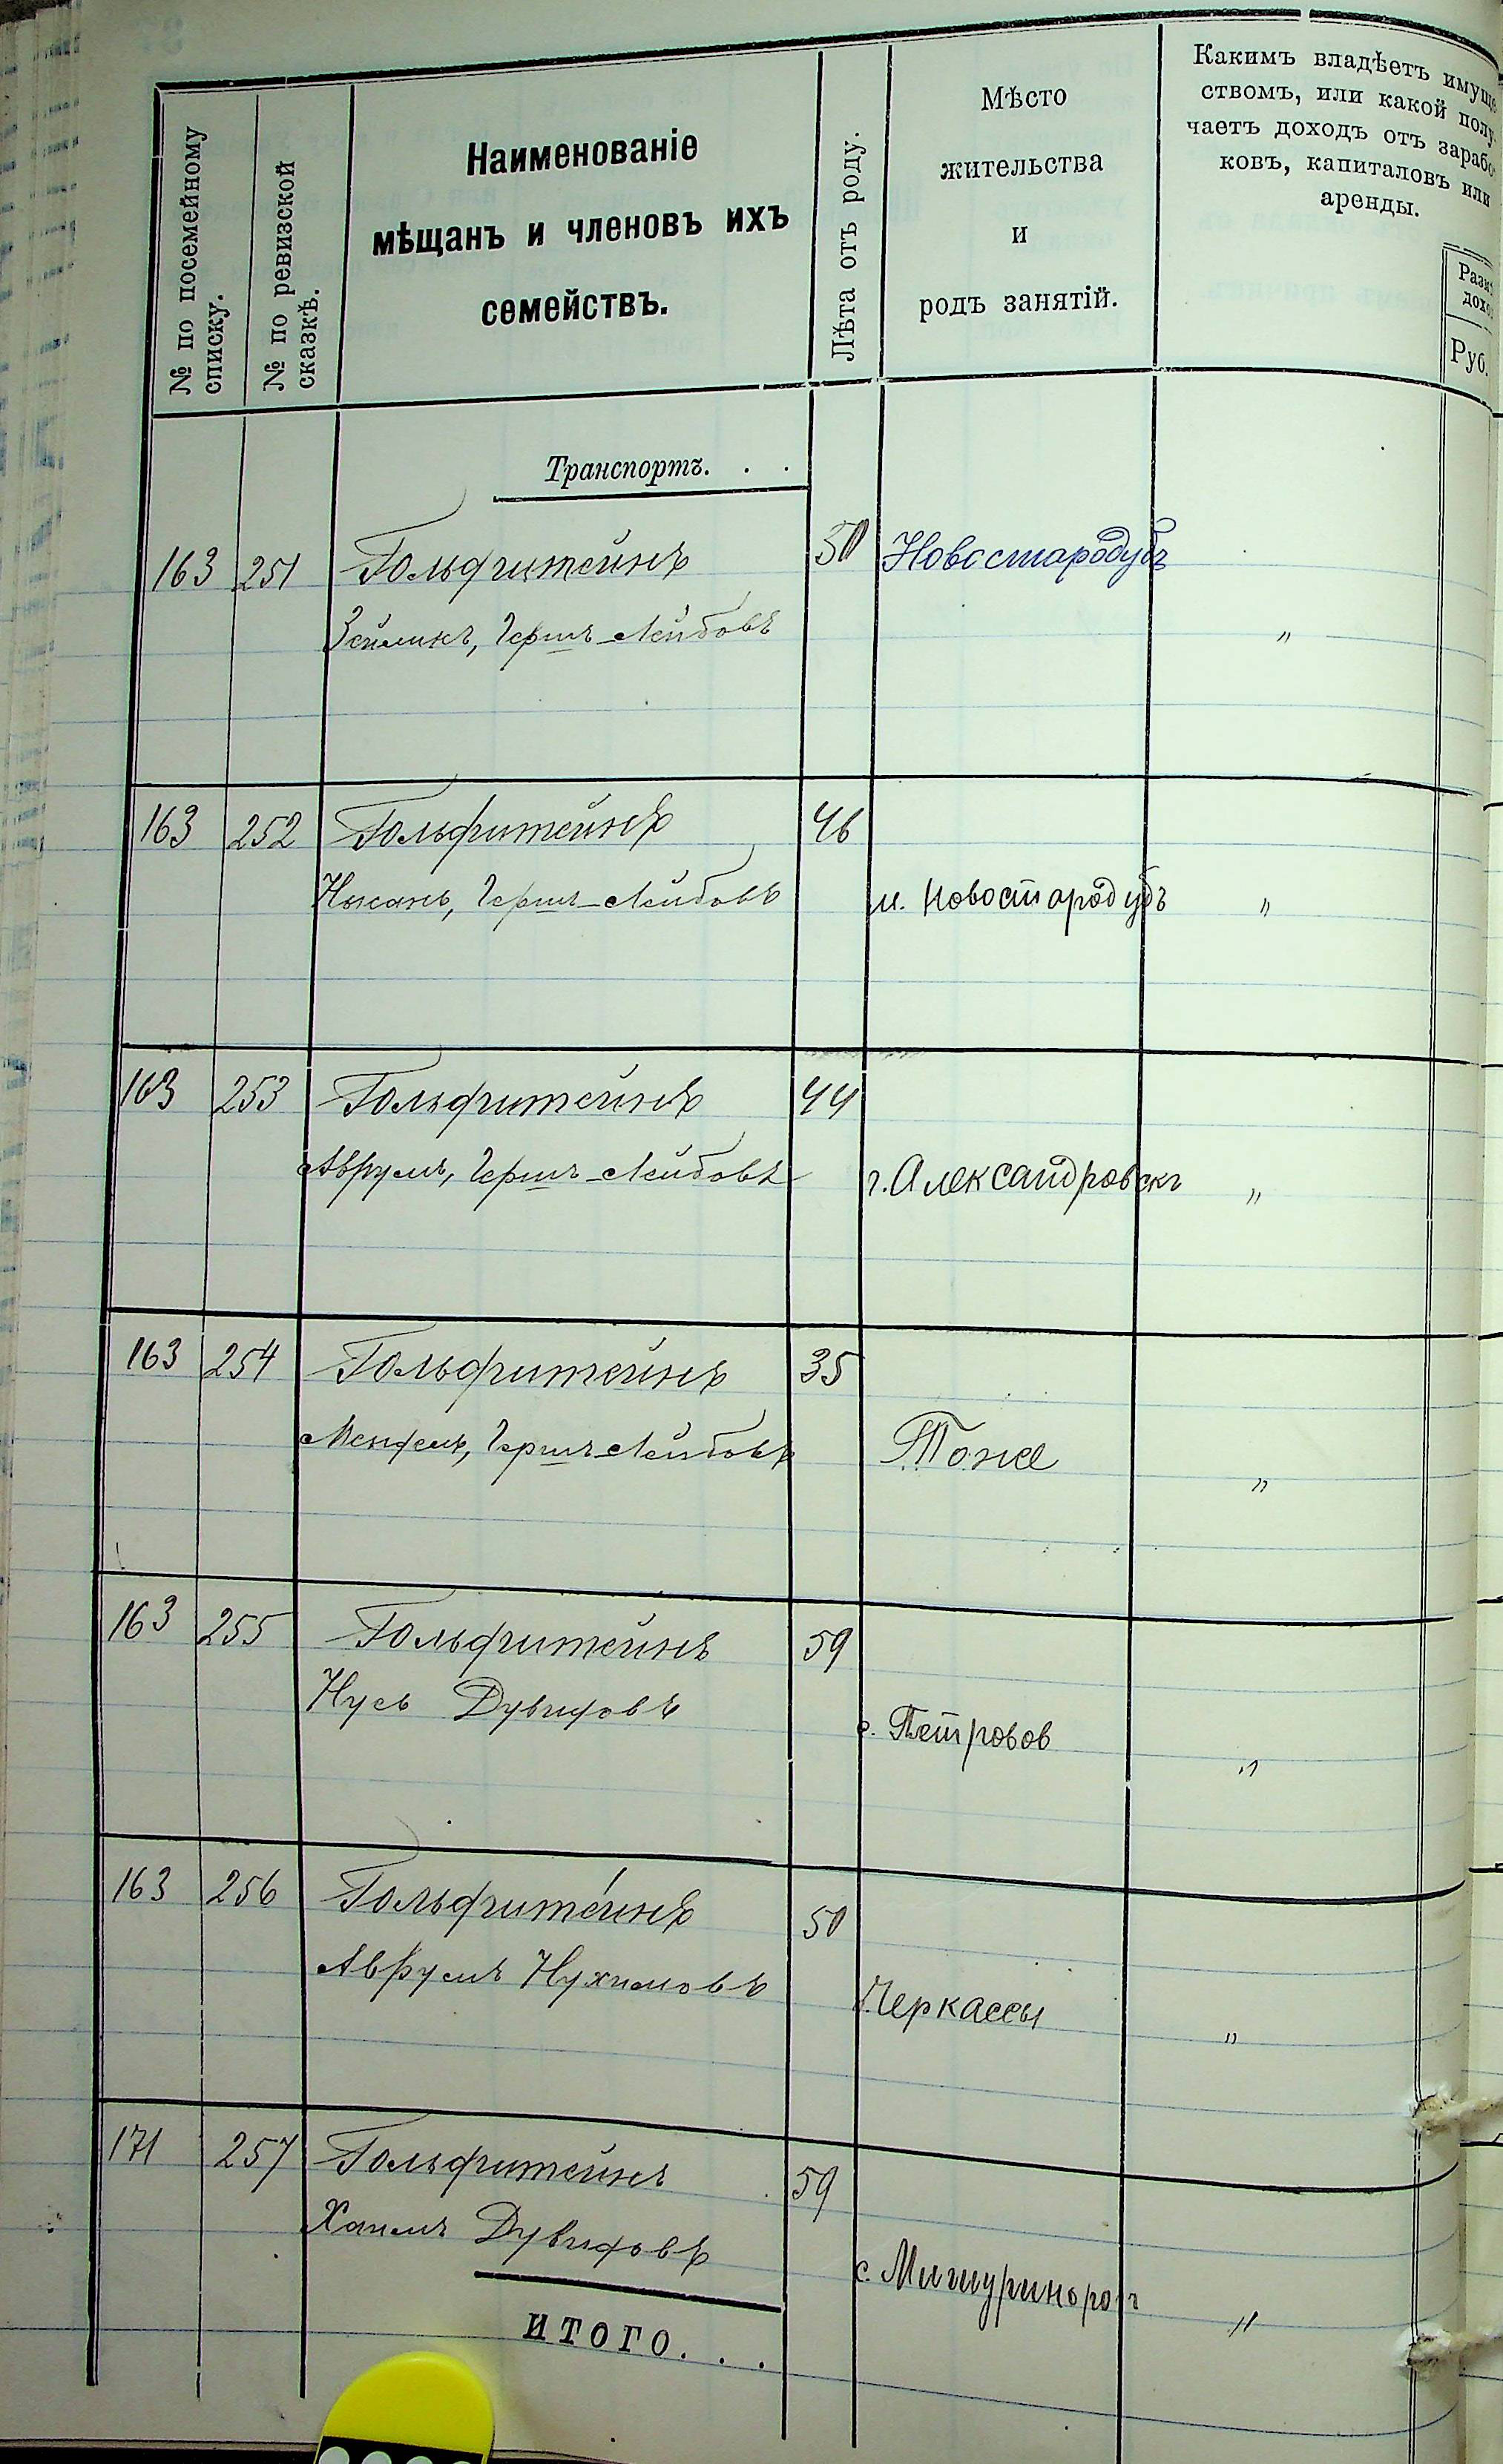 № по посемейному
списку.
№ по ревизской
сказкѣ.
Наименованіе
мѣщанъ и членовъ ихъ
семействъ.
Лѣта отъ роду.
Мѣсто
жительства
и
родъ занятій.
Какимъ владѣетъ имуще
ствомъ, или какой полу-
чаетъ доходъ отъ зарабо
ковъ, капиталовъ или
аренды.
Руб.
Транспортъ. . .
163 251 Гольфштейнъ 50 Новостародубъ
Зейликъ, Гершъ-Лейбовъ "
163 252 Гольфштейнъ 46
Нысань, Гершъ-Лейбовъ м. Новостародубъ "
163 253 Гольфштейнъ 44
Аврумъ, Гершъ-Лейбовъ г. Александровскъ "
163 254 Гольфштейнъ 35
Мендель, Гершъ-Лейбовъ Тоже "
163 255 Гольфштейнъ 59
Нусь Дувидовъ с. Петровов "
163 256 Гольфштейнъ 50
Аврумъ Нухимовъ Черкассы "
171 257 Гольфштейнъ 59
Хаимъ Дувидовъ с. Мишуринъ рогъ "
ИТОГО. . .